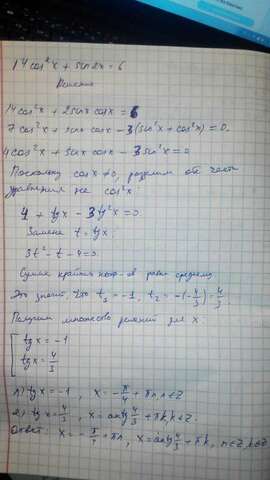 14cos²x + sin2x = 6
Решение
14cos²x + 2sinx cosx = 6
7cos²x + sinx cosx - 3(sin²x + cos²x) = 0.
4cos²x + sinx cosx - 3sin²x = 0
Поскольку cosx ≠ 0, разделим обе части
уравнения на cos²x:
4 + tgx - 3tg²x = 0
Замена t = tgx:
3t² - t - 4 = 0
Сумма крайних коэф-ов равна среднему
Это значит, что t₁ = -1, t₂ = -(-4/3) = 4/3.
Получим множество решений для x.
[ tgx = -1
tgx = 4/3
1) tgx = -1, x = -π/4 + πn, n∈Z
2) tgx = 4/3, x = arctg 4/3 + πk, k∈Z.
Ответ: x = -π/4 + πn, x = arctg 4/3 + πk, n∈Z, k∈Z